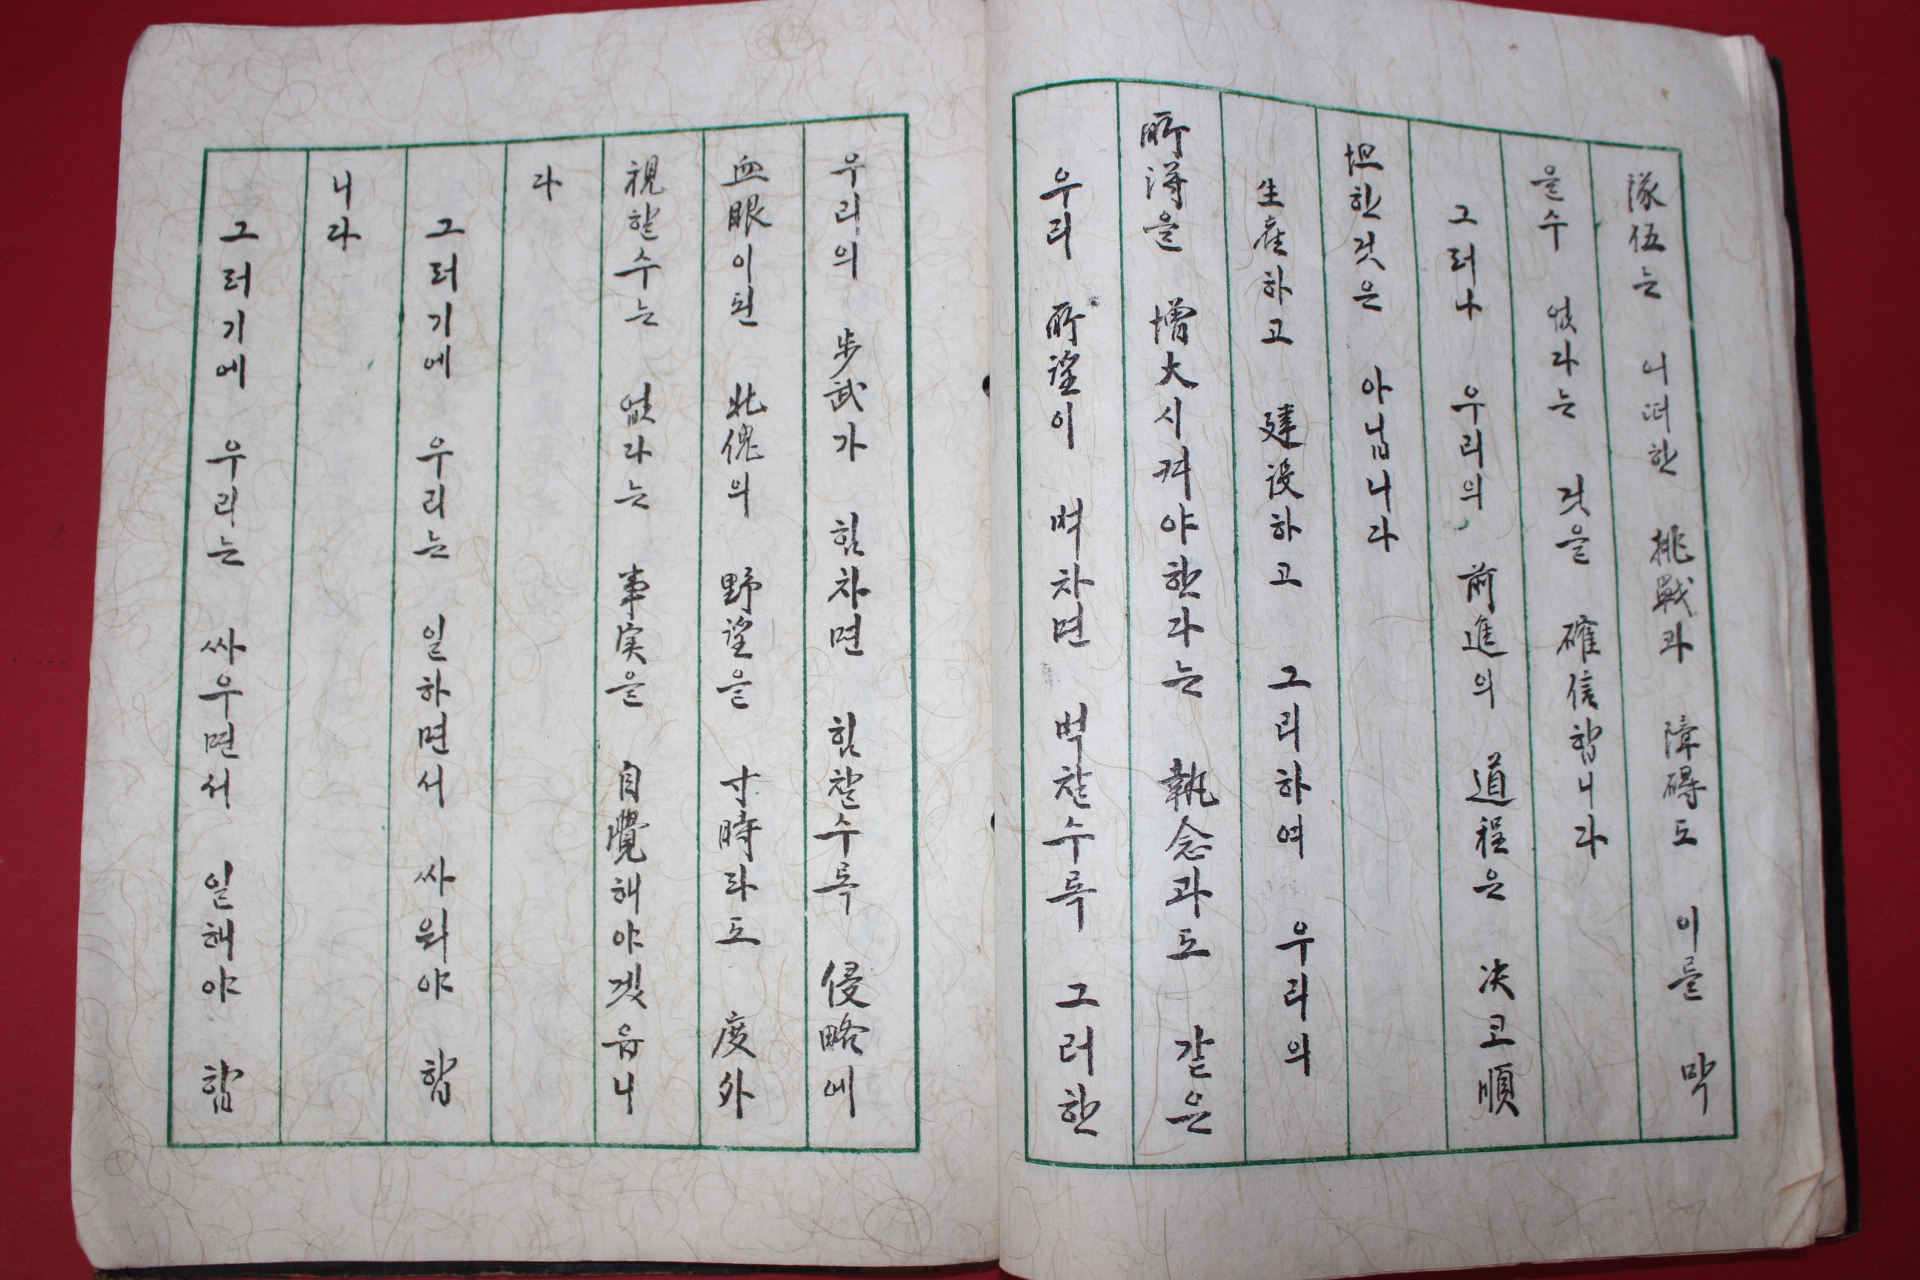 隊伍는 어떠한 挑戰과 障碍도 이를 막
을수 없다는 것을 確信합니다
그러나 우리의 前進의 道程은 决코 順
坦한것은 아닙니다
生産하고 建设하고 그리하여 우리의
所得을 增大시켜야한다는 執念과도 같은
우리 所望이 벅차면 벅찰수록 그러한
우리의 步武가 힘차면 힘찰수록 侵略에
血眼이된 北傀의 野望을 寸時라도 度外
視할수는 없다는 事実을 自覺해야겠읍니
다
그러기에 우리는 일하면서 싸워야 합
니다
그러기에 우리는 싸우면서 일해야 합